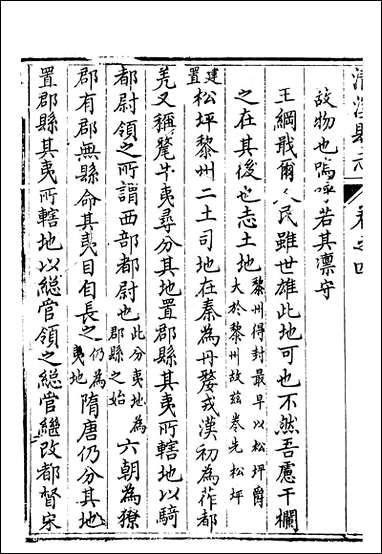 清溪縣志 卷之四
故物也嗚呼若其凛守
王綱戢爾人民雖世雄此地可也不然吾慮干欄
之在其後也志土地黎州得封最早以松坪爵大於黎州故兹卷先松坪
建置松坪黎州二土司地在秦為丹䍧戎漢初為莋都
羌又稱髦牛夷尋分其地置郡縣其夷所轄地以騎
都尉領之所謂西部都尉也此分夷地為郡縣之始六朝為獠
郡有郡無縣命其夷目自長之仍為夷地隋唐仍分其地
置郡縣其夷所轄地以総官領之総官繼改都督宋